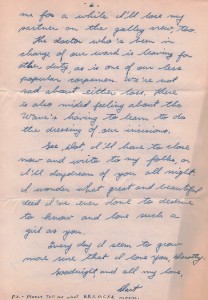 -6-
me for a while I'll lose my
partner on the galley crew, too.
The doctor who's been in
charge of our ward is leaving for
other duty, as is one of our less
popular corpsmen. We're not
sad about either loss, but there
is also mixed feeling about the
Wave's having to learn to do
the dressing of our incisions.
See, Dot, I'll have to close
now and write to my folks, or
I'll daydream of you all night.
I wonder what great and beautiful
deed I've ever done to deserve
to know and love such a
girl as you.
Every day I seem to grow
more sure that I love you, Dorothy.
Goodnight and all my love,
P.S. - Please tell me what